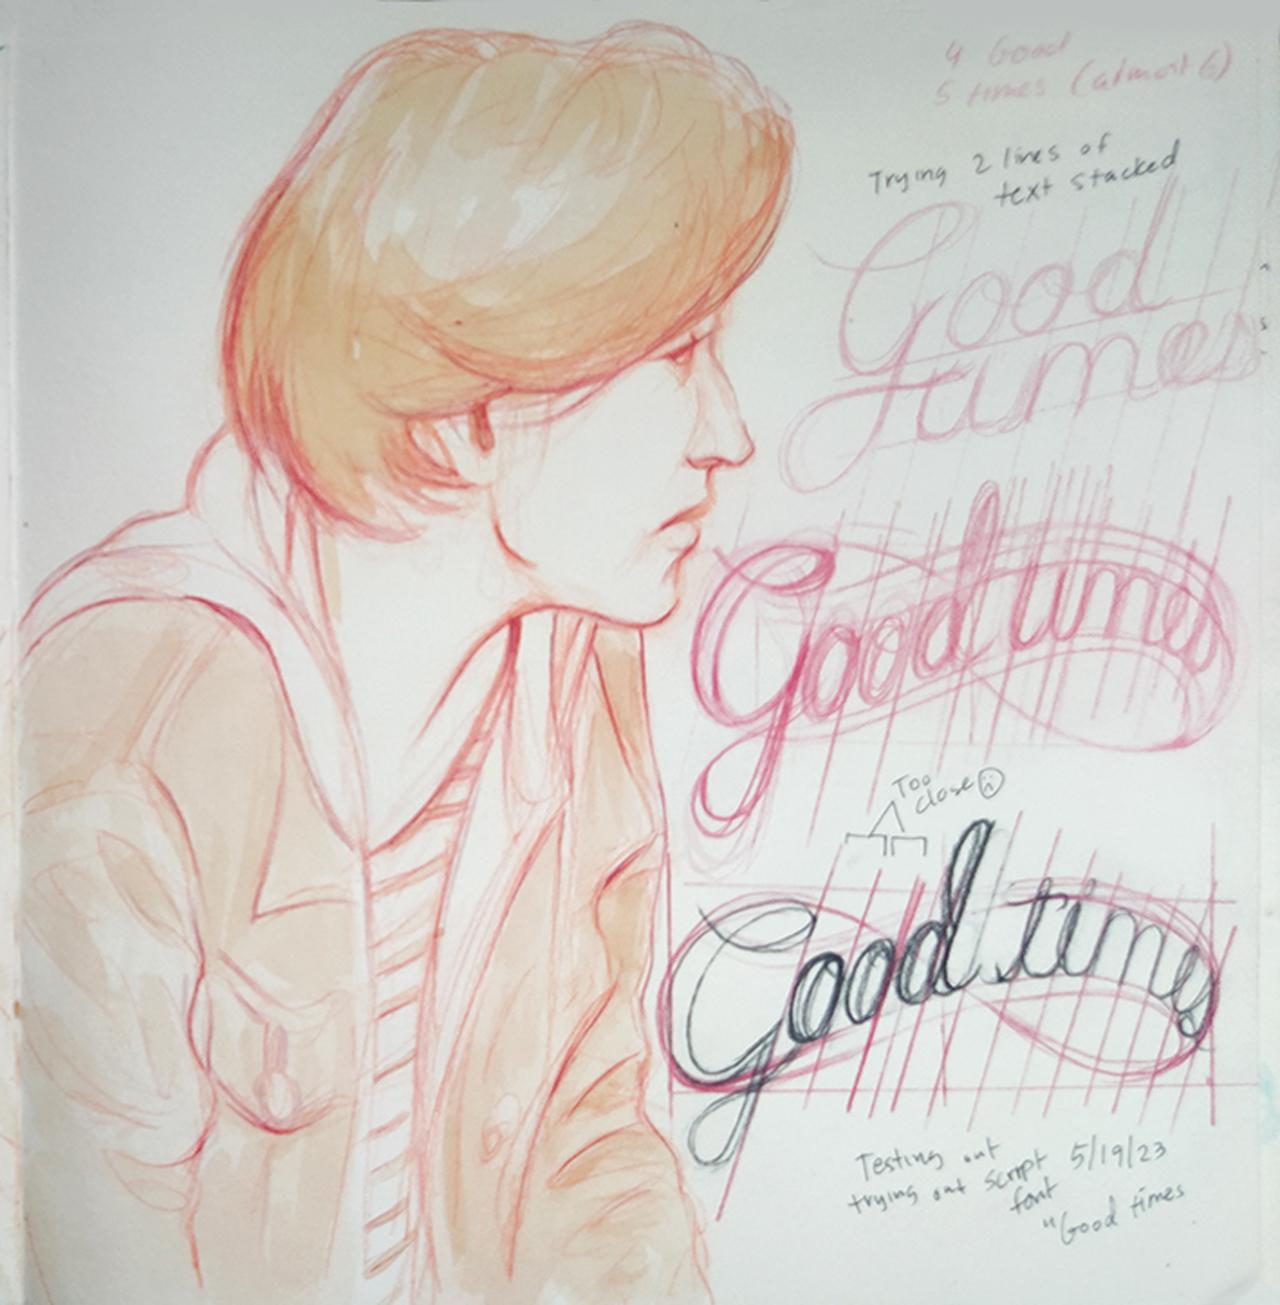 4 Good
5 times (almost 6)
Trying 2 lines of
text stacked
Good
times
Good times
Too
close
Good times
Testing out
trying out script 5/19/23
font
"Good times